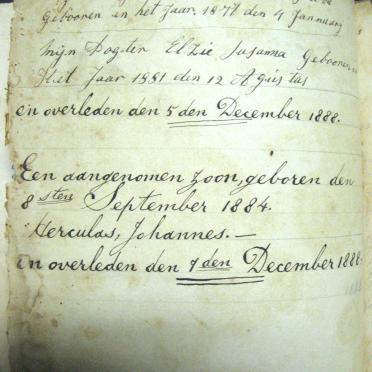 Gebooren in het Jaar, 1877 den 4 Jannuary
Mijn Dogter Elzie Susanna Gebooren
Het Jaar 1881 den 12 Agustus
en overleden den 5 den December 1888.
Een aangenomen zoon, geboren den
8sten September 1884.
Herculas, Johannes. —
en overleden den 7 den December 1888.